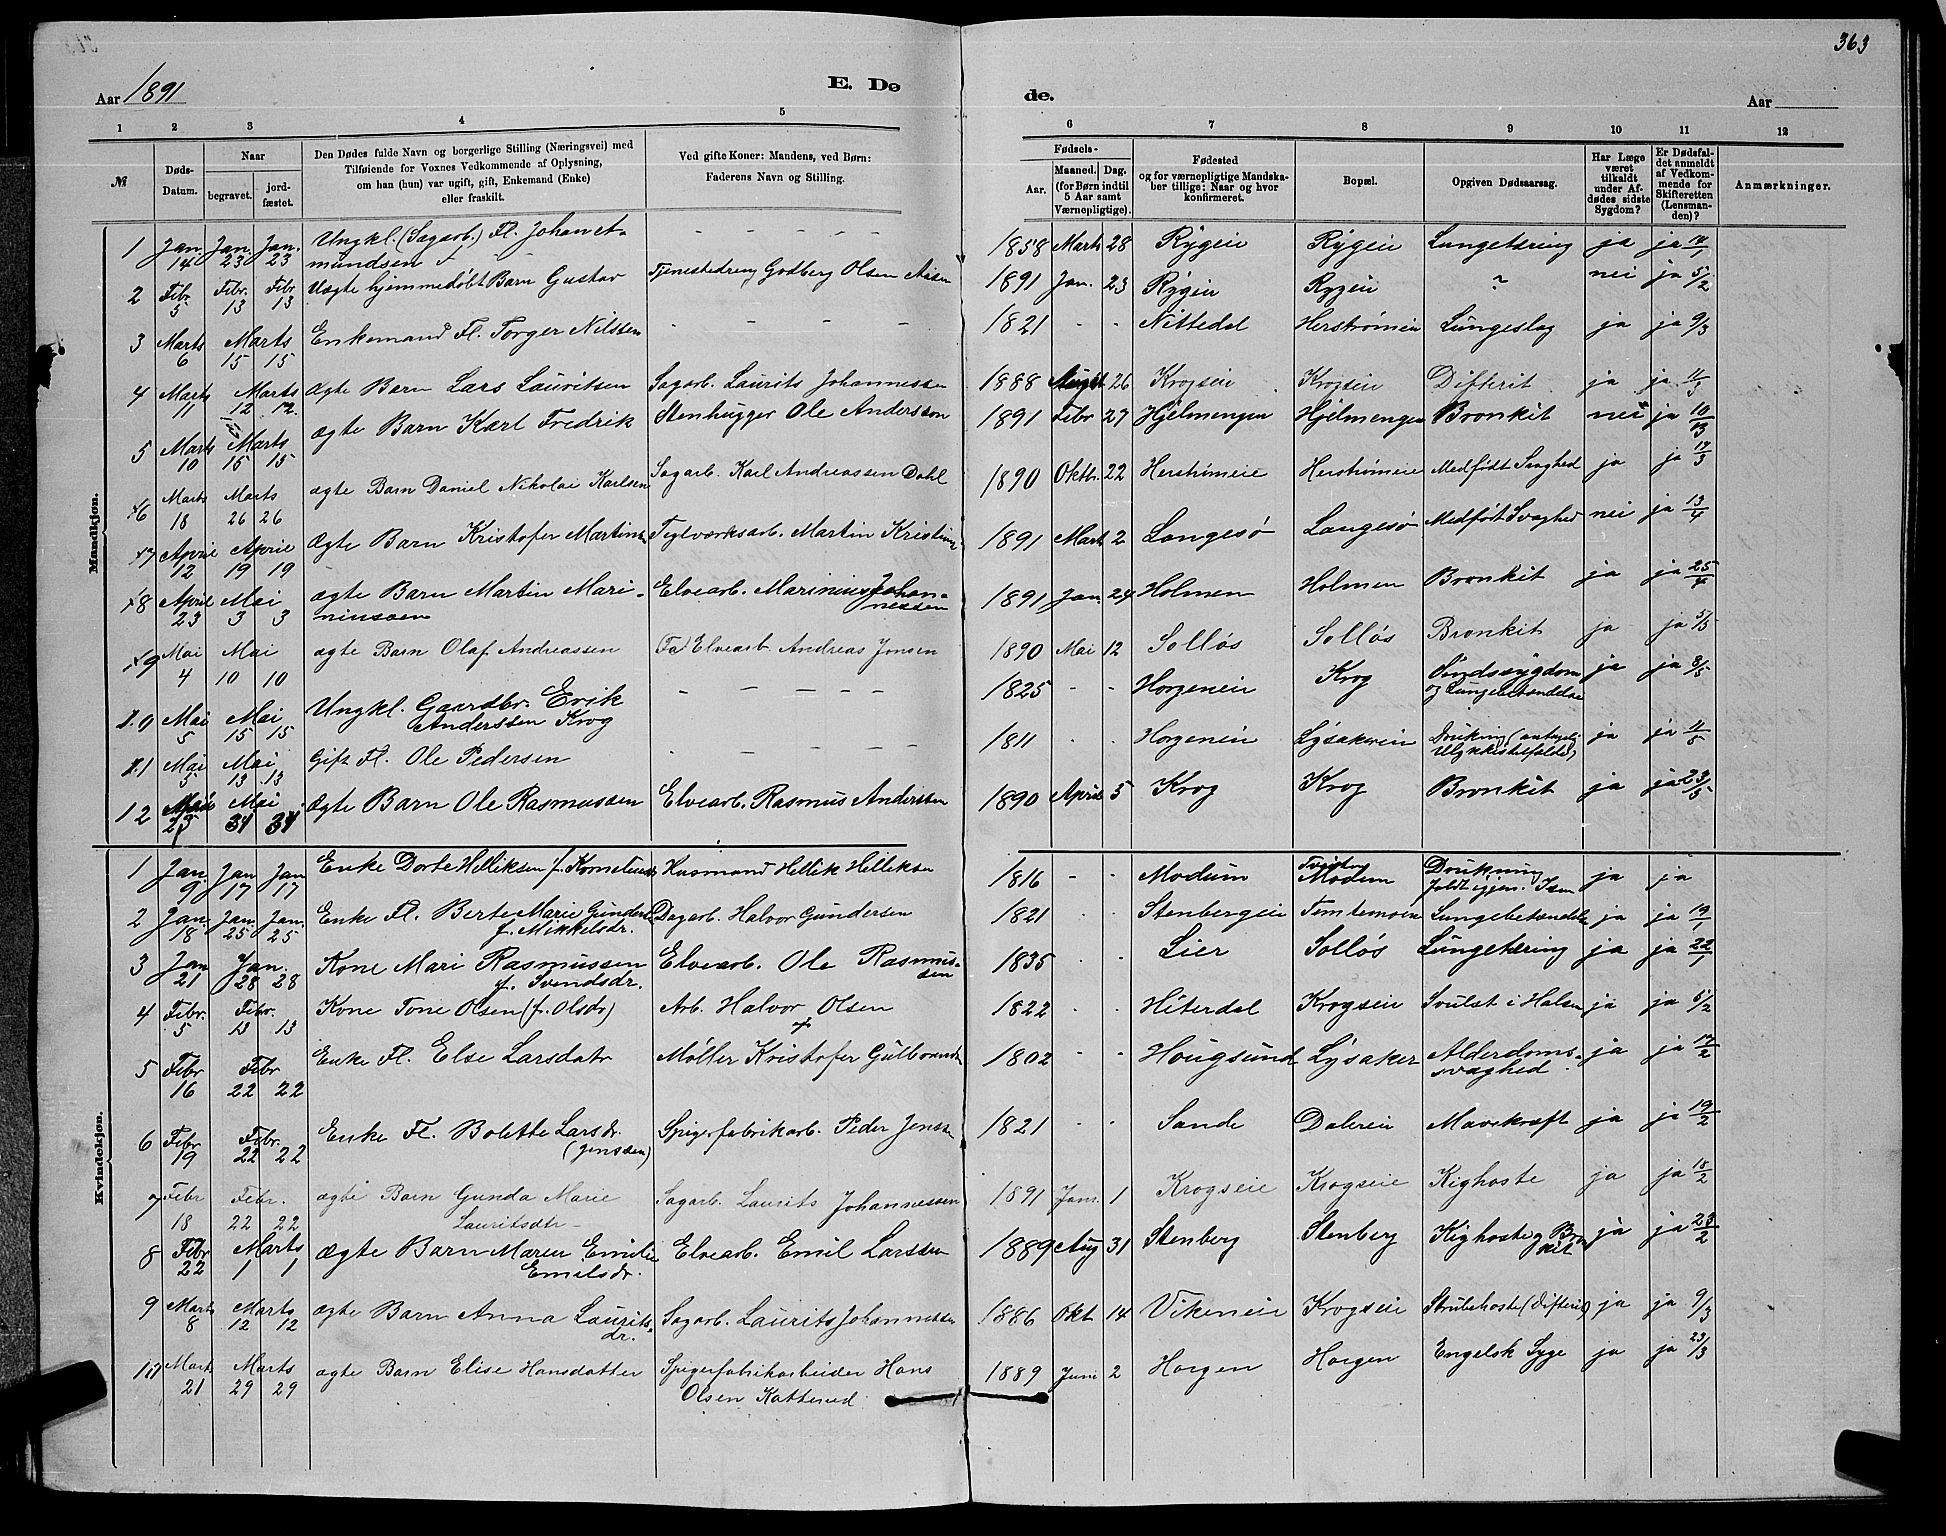 363
Aar 1891
E. Dø
de.
Aar
1 2 3 4 5
6 7 8 9 10 11 12
№
Døds-Datum.
Naar
begravet.
jord-fæstet.
Den Dødes fulde Navn og borgerlige Stilling (Næringsvei) med
Tilføiende for Voxnes Vedkommende af Oplysning,
om han (hun) var ugift, gift, Enkemand (Enke)
eller fraskilt.
Ved gifte Koner: Mandens, ved Børn:
Faderens Navn og Stilling.
Fødsels-
Aar.
Maaned. Dag.
(for Børn indtil
5 Aar samt
Værnepligtige).
Fødested
og for værnepligtige Mandska-
ber tillige: Naar og hvor
konfirmeret.
Bopæl.
Opgiven Dødsaarsag.
Har Læge
været
tilkaldt
under Af-
dødes sidste
Sygdom?
Er Dødsfal-
det anmeldt
af Vedkom-
mende for
Skifteretten
(Lensman-
den)?
Anmærkninger.
Mandkjøn.
1 Jan. 14 Jan. 23 Jan. 23 Ungkl. (Sagarb.) Fl. Johan Amundsen - - - - - 1858 Marts 28 Rygeie Rygeie Lungetæring ja ja
2 Febr. 5 Febr. 13 Febr. 13 Uægte hjemmedøbt Barn Gustav Tjenestedreng Godberg Olsen 1891 Jan. 23 Rygeie Rygeie ? nei ja 5/2
3 Marts 6 Marts 15 15 Enkemand Fl. Torger Nilssen - - - - 1821 - - Nittedal Herstrømeie Lungeslag ja ja 9/3
4 Marts 11 Marts 12 12 Ægte Barn Lars Lauritsen Sagarb. Laurits Johannessen 1888 August 26 Krogseie Krogseie Difterit ja ja 11/3
5 Marts 10 Marts 15 15 ægte Barn Karl Fredrik Stenhugger Ole Anderssen 1891 Febr 27 Hjelmengen Hjelmengen Bronkit nei ja
6 Marts 18 Marts 26 26 ægte Barn Daniel Nikolai Karlsen Sagarb. Karl Andreassen Dahl 1890 Oktbr. 22 Herstrømeie Herstrømeie Medfødt Svaghed ja ja
7 April 12 April 19 19 Ægte Barn Kristofer Martins. Teglværksarb. Martin 1891 Marts 2 Langesø Langesø Medfødt Svaghed nei ja 13/4
8 April 23 Mai 3 3 ægte Barn Martin Mariniussen Elvearb. Marinius Johannessen 1891 Jan. 24 Holmen Holmen Bronkit ja ja 25/4
9 Mai 4 Mai 10 10 ægte Barn Olaf Andreassen (Fa) Elvearb. Andreas Jonsen 1890 Mai 12 Solløs Solløs Bronkit ja ja 5/5
10 Mai 5 Mai 15 15 Ungkl. Gaardbr. Erik Anderssen Krog - - - - - 1825 - - Horgeneie Krog og Lungebetændelse ja ja 8/5
11 Mai 5 Mai 13 13 Gift Fl. Ole Pedersen - - - - - 1811 - - Horgeneie Lysakereie Drukning ja ja 11/5
12 Mai 23 Mai 31 31 Ægte Barn Ole Rasmussen Elvearb. Rasmus Anderssen 1890 April 5 Krog Krog Bronkit ja ja 23/5
Kvindekjøn.
1 Jan. 9. Jan 17 Jan 17 Enke Dorte Helliksen f. Korneliusdr. Husmand Hellik Helliksen 1816 - - Modum Modum Drukning ja ja
2 Jan. 18 Jan. 25 Jan. 25 Enke Fl. Berte Marie Gunders. f. Mikkelsdr. Dagarb. Halvor Gundersen 1821 - - Stenbergeie Temtemoen Lungebetændelse ja ja 19/1
3 Jan 21 Jan. 28 28 Kone Mari Rasmussen f. Svendsdr. Elvearb. Ole Rasmussen 1835 - - Lier Solløs Lungetæring ja ja 22/1
4 Febr. 5 Febr. 13 13 Kone Tone Olsen (f. Olsdr) Arb. Halvor Olsen 1822 - - Hiterdal Krogseie Svulst i Halsen ja ja 5/2
5 Febr 16 Febr 22 22 Enke Fl. Else Larsdatr Møller Kristofer Gulbrands. 1802 - - Hougsund Lysaker Alderdomssvaghed. ja ja 17/2
6 Febr. 19 Febr. 22 22 Enke Fl. Bolette Larsdr. (Jenssen) Spigerfabrikarb. Peder Jenssen 1821 - - Sande Dalereie Mavekræft ja ja 19/2
7 Febr 18 Febr. 22 22 ægte Barn Gunda Marie Lauritsdtr Sagarb. Laurits Johannessen 1891 Jan. 1 Krogseie Krogseie Kighoste ja ja 18/2
8 Febr. 22 Marts 1 1 Ægte Barn Maren Emilie Emilsdr. Elvearb. Emil Larssen 1889 Aug 31 Stenberg Stenberg Kighoste og Bronkit ja ja 23/2
9 Marts 8 Marts 12 12 ægte Barn Anna Lauritsdr. Sagarb. Laurits Johannessen 1886 Okt 14 Vikeneie Krogseie Strubehoste (Difterit) ja ja 9/3
10 Marts 21 Marts 29 29 ægte Barn Elise Hansdatter Spigerfabrikarbeider Hans Olsen Katterud 1889 Juni 2 Horgen Horgen Engelsk Syge ja ja 23/3